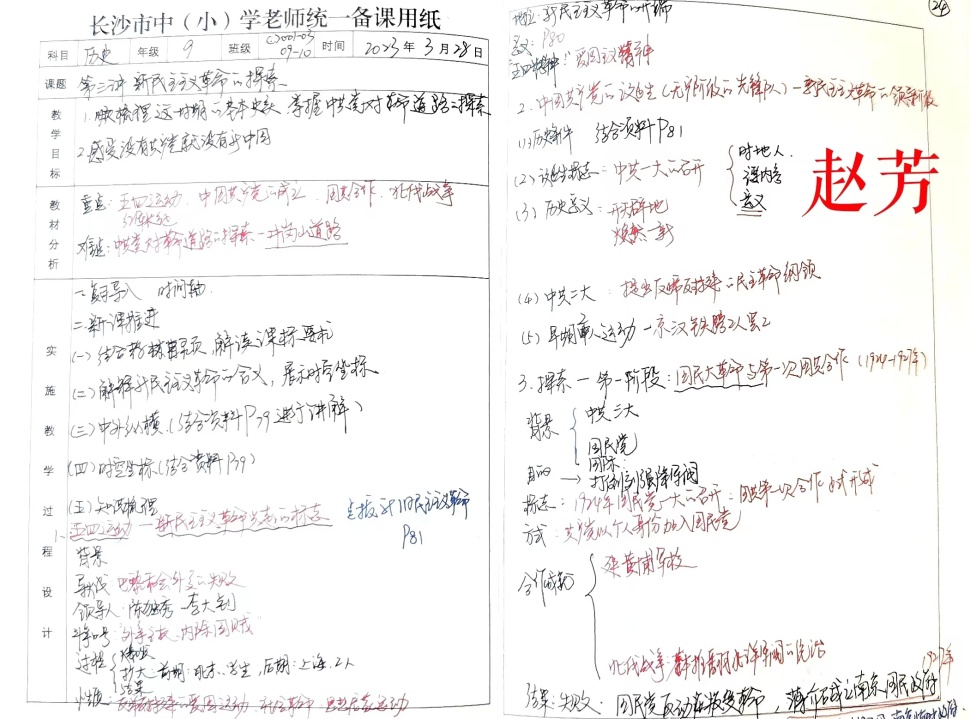 长沙市中（小）学老师统一备课用纸
科目 历史 年级 9 班级 09-10 时间 2023年3月28日
课题 第三讲 新民主主义革命的探索
教学目标
1.梳理这一时期的基本史实，掌握中共党对革命道路的探索
2.感受没有共产党就没有新中国
教材分析
重点：五四运动、中国共产党的成立、国共合作、北伐战争
难点：中共党对革命道路的探索—井冈山道路
实施教学过程设计
一.复习导入 时间轴
二.新课推进
(一)结合教材单元首页，解读课标要求
(二)解释新民主主义革命的含义，展示时空坐标
(三)中外纵横（结合资料P79进行讲解）
(四)时空坐标(结合资料P79)
(五)知识梳理
1.五四运动—新民主主义革命开始的标志
P81
背景
导火线 巴黎和会外交的失败
领导人 陈独秀 李大钊
口号 "外争主权、内除国贼"
过程
爆发
扩大 前期：北京、学生，后期：上海、工人
结果
性质
地位：新民主主义革命的开端
意义：P80
五四精神：爱国主义精神
24
2.中国共产党的诞生（无产阶级的先锋队）—新民主主义革命的领导阶级
(1)历史条件 结合资料P81
(2)诞生标志：中共一大的召开
时地人
意义
(3)历史意义：开天辟地
焕然一新
赵芳
(4)中共二大：提出反帝反封建的民主革命纲领
(5)早期工人运动—京汉铁路工人罢工
3.探索—第一阶段：国民大革命与第一次国共合作（1924-1927年）
背景
中共三大
国民党
国际
目的 → 打倒列强除军阀
标志：1924年国民党一大的召开：国共第一次合作正式形成
方式：共产党以个人身份加入国民党
合作成就
建黄埔军校
北伐战争：基本推翻北洋军阀的统治
1927年
结果：失败：国民党反动派叛变革命，蒋介石成立南京国民政府